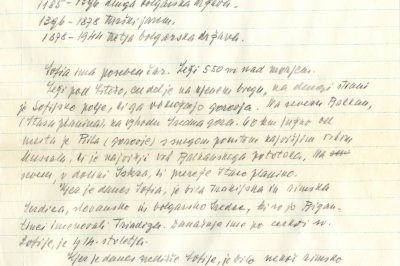 1185 - 1396 druga bolgarska država.
1396 - 1878 Turški jarem.
1878 - 1944 tretja bolgarska država.
Sofia ima poseben čar. Leži 550 m nad morjem.
Leži pod Vitošo, en del je na njenem bregu, na drugi strani
je Sofijsko polje, ki ga obkrožajo gorovja. Na severu Balkan,
(Stara planina), na vzhodu Sredna gora. 60 km južno od
mesta je Rila (gorovje) s svojim ponosnim najvišjim vrhom
Musala, ki je najvišji vrh Balkanskega polotoka. Na
severu v dolini Iskra, ki prereže Staro planino.
Kjer je danes Sofia, je bila Trakijska in rimska
Serdica, slovansko in bolgarsko Sredec, ki so jo Bizan-
tinci imenovali Triadiza. Današnje ime po cerkvi sv.
Sofije, je iz 14. stoletja.
Kjer je danes središče Sofije, je bilo nekoč rimsko